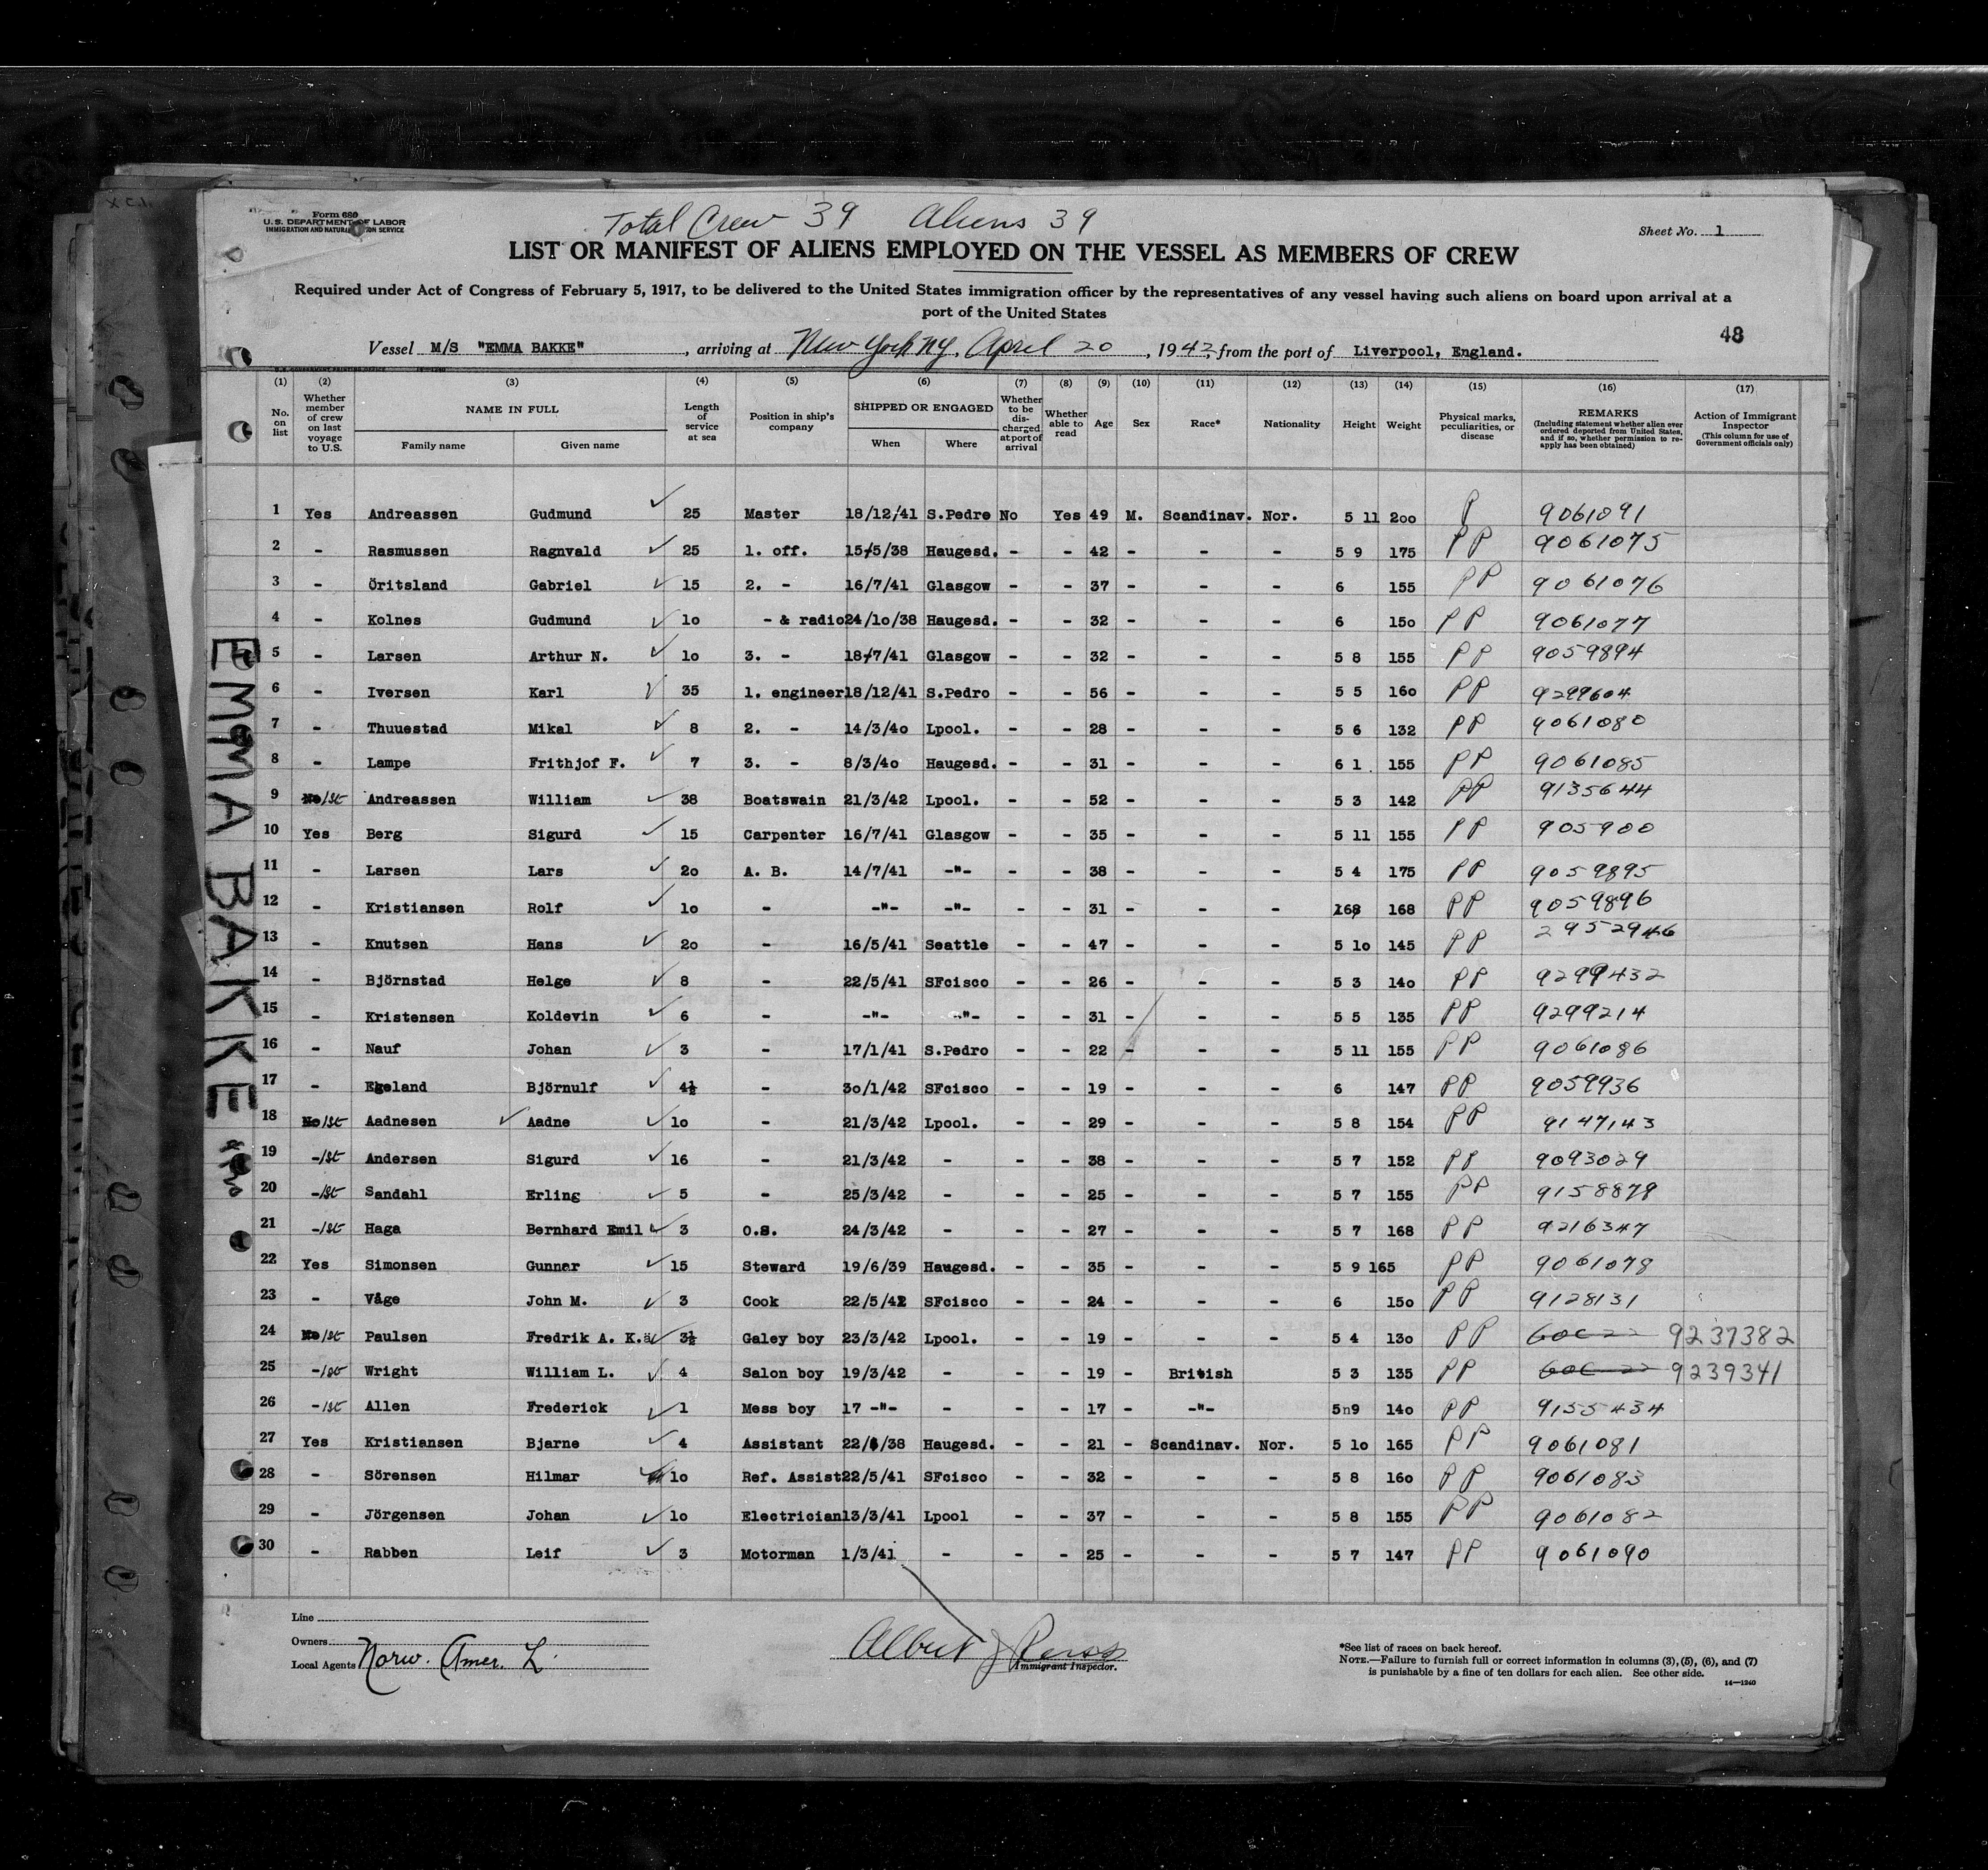 Form 680
U.S. DEPARTMENT OF LABOR
IMMIGRATION AND NATURALIZATION SERVICE
Total Crew 39 Aliens 39
Sheet No. 1
LIST OR MANIFEST OF ALIENS EMPLOYED ON THE VESSEL AS MEMBERS OF CREW
Required under Act of Congress of February 5, 1917, to be delivered to the United States immigration officer by the representatives of any vessel having such aliens on board upon arrival at a
port of the United States
48
Vessel M/S "EMMA BAKKE", arriving at New York NY. April 20, 1942, from the port of Liverpool, England.
(1) (2) (3) (4) (5) (6) (7) (8) (9) (10) (11) (12) (13) (14) (15) (16) (17)
No. on list Whether member of crew on last voyage to U.S. NAME IN FULL Family name Given name Length of service at sea Position in ship's company SHIPPED OR ENGAGED When Where Whether to be discharged at port of arrival Whether able to read Age Sex Race* Nationality Height Weight Physical marks, peculiarities, or disease REMARKS (Including statement whether alien ever ordered deported from United States, and if so, whether permission to reapply has been obtained) Action of Immigrant Inspector (This column for use of Government officials only)
1 Yes Andreassen Gudmund ✓ 25 Master 18/12/41 S.Pedre No Yes 49 M. Scandinav. Nor. 5 11 200 P 9061091
2 - Rasmussen Ragnvald ✓ 25 1. off. 15/5/38 Haugesd. - - 42 - - - 5 9 175 PP 9061075
3 - Öritsland Gabriel ✓ 15 2. - 16/7/41 Glasgow - - 37 - - - 6 155 PP 9061076
4 - Kolnes Gudmund ✓ 10 - & radio 24/10/38 Haugesd. - - 32 - - - 6 150 PP 9061077
5 - Larsen Arthur N. ✓ 10 3. - 18/7/41 Glasgow - - 32 - - - 5 8 155 PP 9059894
6 - Iversen Karl ✓ 35 1. engineer 18/12/41 S.Pedro - - 56 - - - 5 5 160 PP 9299604
7 - Thuuestad Mikal ✓ 8 2. - 14/3/40 Lpool. - - 28 - - - 5 6 132 PP 9061080
8 - Lampe Frithjof F. ✓ 7 3. - 8/3/40 Haugesd. - - 31 - - - 6 1 155 PP 9061085
9 No/st Andreassen William ✓ 38 Boatswain 21/3/42 Lpool. - - 52 - - - 5 3 142 PP 9135644
10 Yes Berg Sigurd ✓ 15 Carpenter 16/7/41 Glasgow - - 35 - - - 5 11 155 PP 905900
11 - Larsen Lars ✓ 20 A. B. 14/7/41 -"- - - 38 - - - 5 4 175 PP 9059895
12 - Kristiansen Rolf ✓ 10 - -"- -"- - - 31 - - - 168 168 PP 9059896
13 - Knutsen Hans ✓ 20 - 16/5/41 Seattle - - 47 - - - 5 10 145 PP 2952946
14 - Björnstad Helge ✓ 8 - 22/5/41 SFcisco - - 26 - - - 5 3 140 PP 9299432
15 - Kristensen Koldevin ✓ 6 - -"- -"- - - 31 - - - 5 5 135 PP 9299214
16 - Nauf Johan ✓ 3 - 17/1/41 S.Pedro - - 22 - - - 5 11 155 PP 9061086
17 - Egeland Björnulf ✓ 4½ - 30/1/42 SFcisco - - 19 - - - 6 147 PP 9059936
18 No/st Aadnesen ✓ Aadne ✓ 10 - 21/3/42 Lpool. - - 29 - - - 5 8 154 PP 9147143
19 -/st Andersen Sigurd ✓ 16 - 21/3/42 - - - 38 - - - 5 7 152 PP 9093029
20 -/st Sandahl Erling ✓ 5 - 25/3/42 - - - 25 - - - 5 7 155 PP 9158879
21 -/st Haga Bernhard Emil ✓ 3 O.S. 24/3/42 - - - 27 - - - 5 7 168 PP 9216347
22 Yes Simonsen Gunnar ✓ 15 Steward 19/6/39 Haugesd. - - 35 - - - 5 9 165 PP 9061078
23 - Våge John M. ✓ 3 Cook 22/5/42 SFcisco - - 24 - - - 6 150 PP 9128131
24 No/st Paulsen Fredrik A. K. ✓ 3½ Galey boy 23/3/42 Lpool. - - 19 - - - 5 4 130 PP 9237382
25 -/st Wright William L. ✓ 4 Salon boy 19/3/42 - - - 19 - British 5 3 135 PP 9239341
26 -/st Allen Frederick ✓ 1 Mess boy 17 -"- - - - 17 - -"- 5n9 140 PP 9155434
27 Yes Kristiansen Bjarne ✓ 4 Assistant 22/6/38 Haugesd. - - 21 - Scandinav. Nor. 5 10 165 PP 9061081
28 - Sörensen Hilmar 10 Ref. Assist 22/5/41 SFcisco - - 32 - - - 5 8 160 PP 9061083
29 - Jörgensen Johan ✓ 10 Electrician 13/3/41 Lpool - - 37 - - - 5 8 155 PP 9061082
30 - Rabben Leif ✓ 3 Motorman 1/3/41 - - - 25 - - - 5 7 147 PP 9061090
EMMA BAKKE
Line
Owners
Local Agents Norw. Amer. L.
Albert J
Immigrant Inspector.
*See list of races on back hereof.
NOTE.—Failure to furnish full or correct information in columns (3), (5), (6), and (7)
is punishable by a fine of ten dollars for each alien. See other side.
14—1240